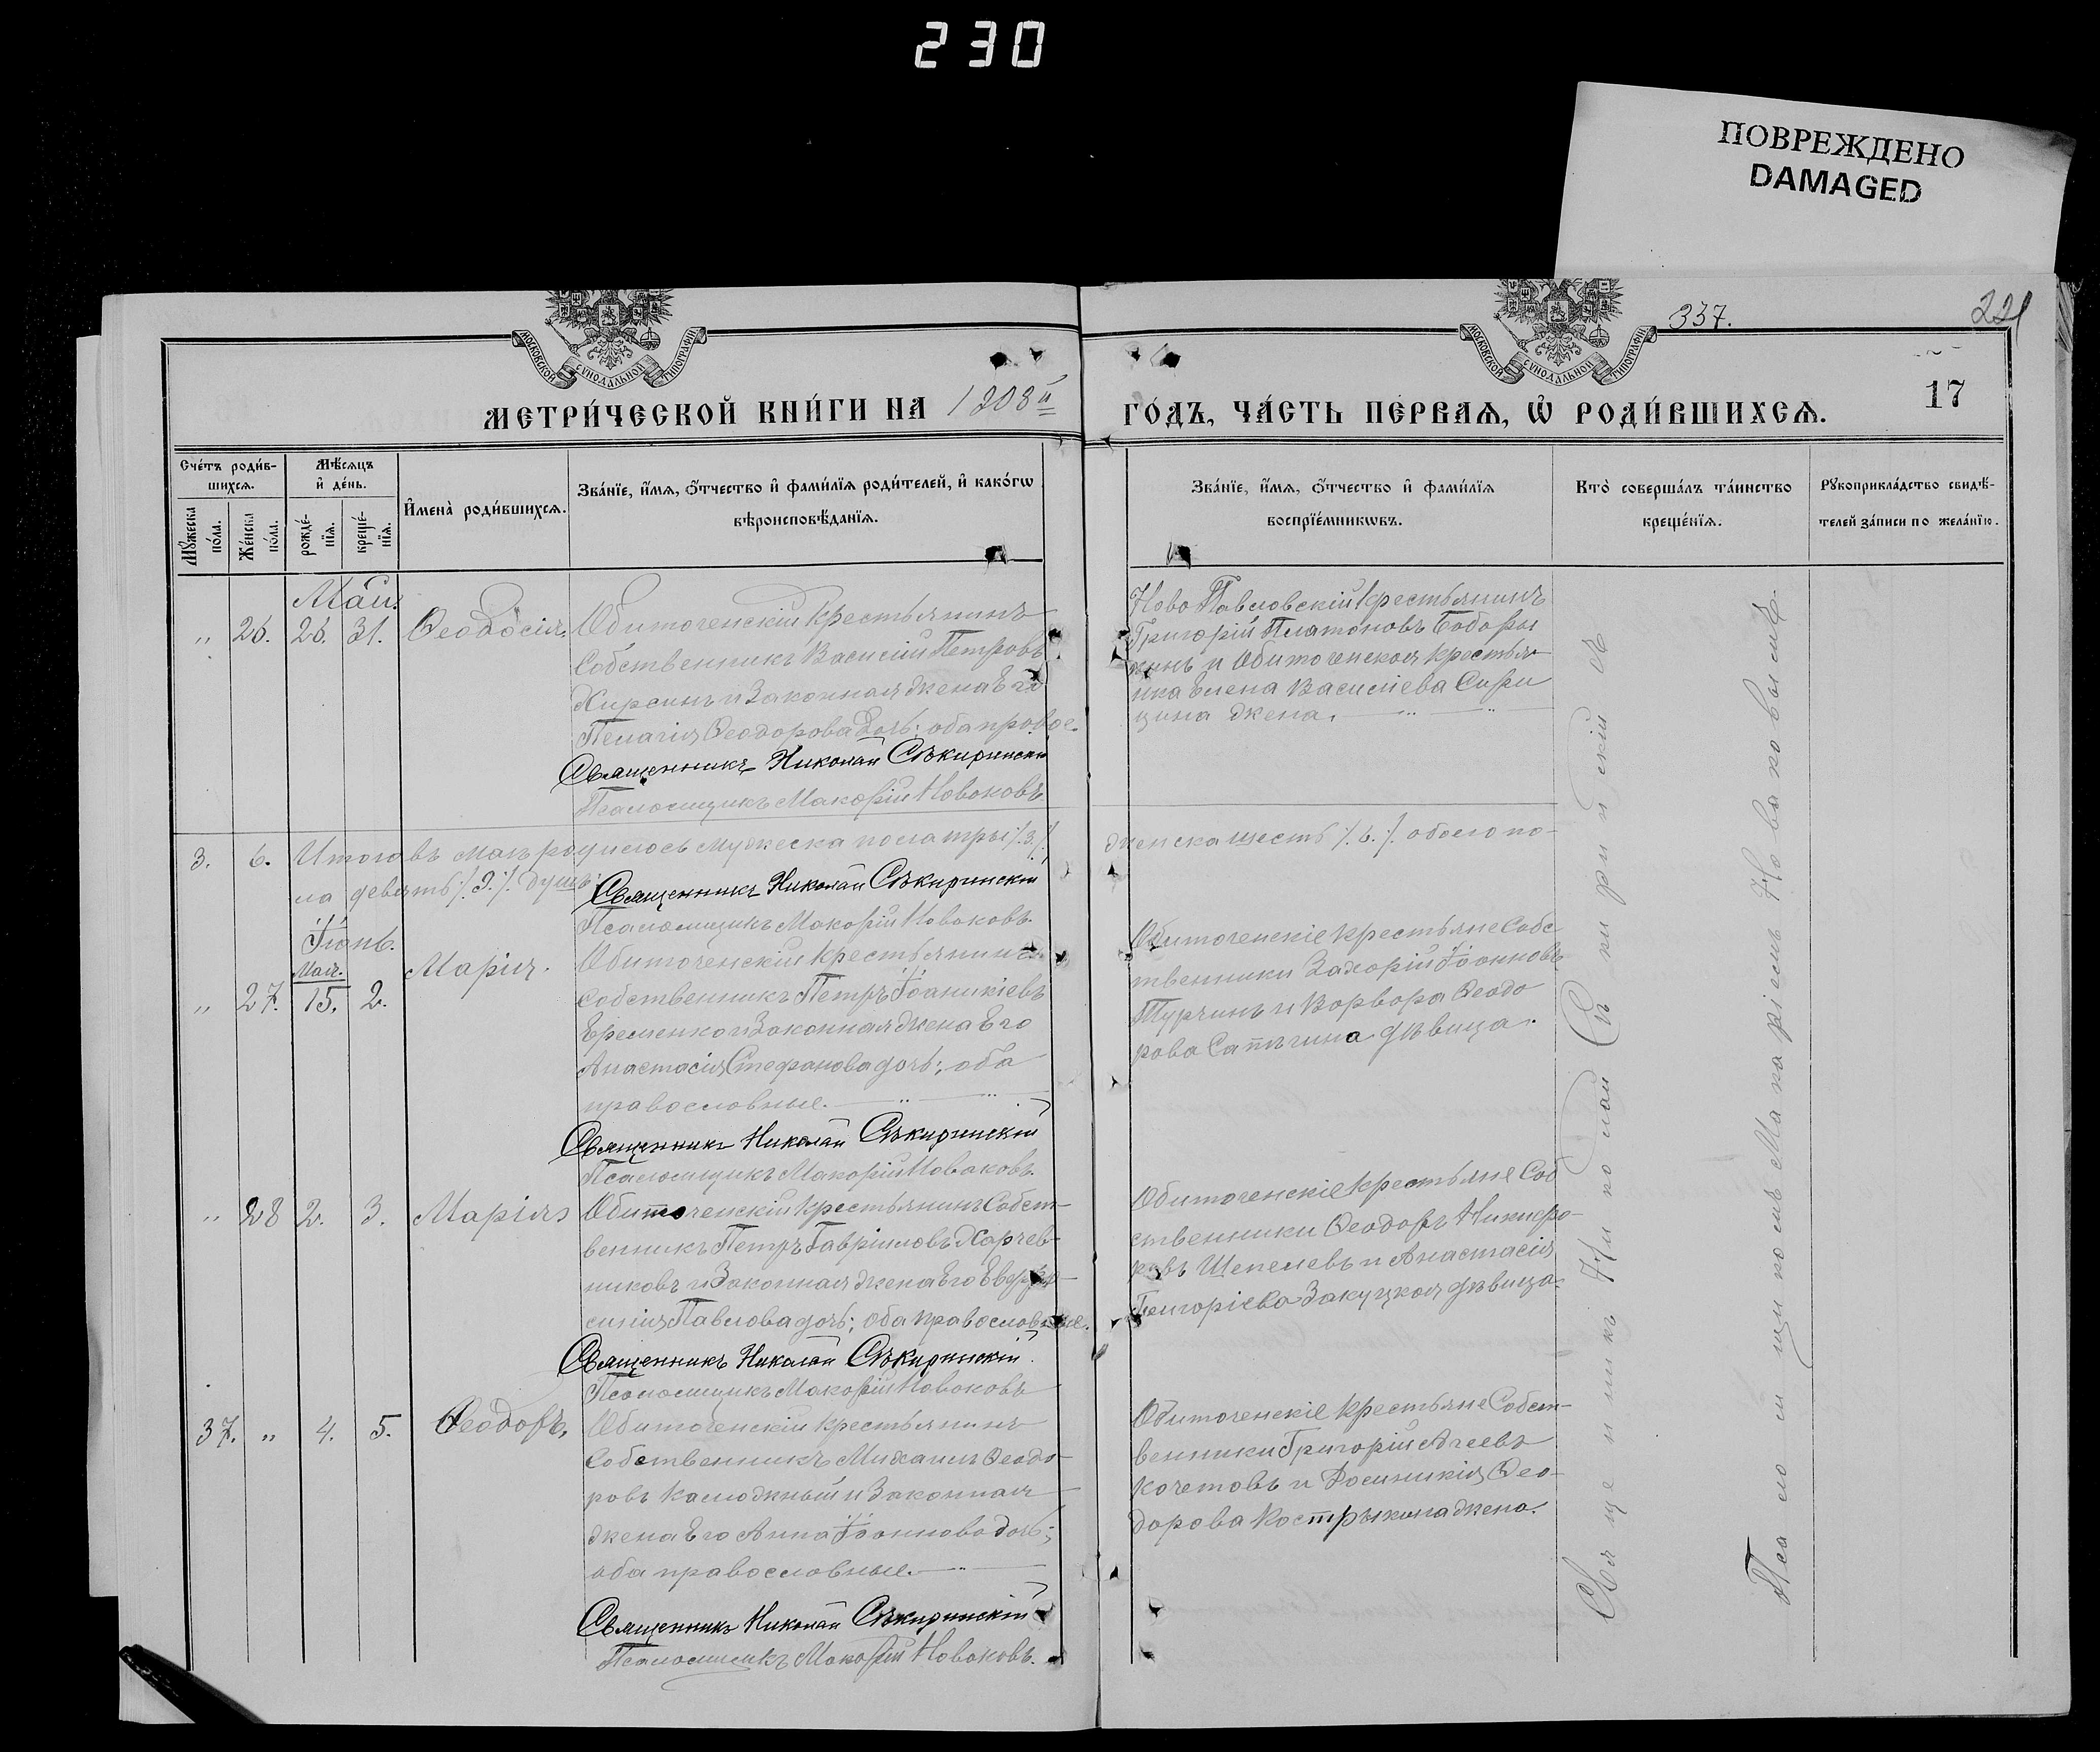 230
ПОВРЕЖДЕНО
DAMAGED
МОСКОВСКОЙ СУНОДАЛЬНОЙ ТИПОГРАФІИ
МОСКОВСКОЙ СУНОДАЛЬНОЙ ТИПОГРАФІИ
337.
221
17
МЕТРИ́ЧЕСКОЙ КНИ́ГИ НА 1908й
ГО́ДЪ, ЧА́СТЬ ПЕ́РВАѦ, Ѡ҆ РОДИ́ВШИХСѦ.
Сче́тъ роди́в-
шихсѧ.
Мꙋ́жеска по́ла.
Же́нска по́ла.
Мѣ́сѧцъ
и҆ де́нь.
рожде́-
нїѧ.
креще́-
нїѧ.
И҆мена̀ роди́вшихсѧ.
Зва́нїе, и҆́мѧ, ѻ҆́тчество и҆ фами́лїѧ роди́телей, и҆ како́гѡ
вѣроисповѣ́данїѧ.
Зва́нїе, и҆́мѧ, ѻ҆́тчество и҆ фами́лїѧ
воспрїе́мникѡвъ.
Кто̀ соверша́лъ та́инство
креще́нїѧ.
Рꙋкоприкла́дство свидѣ́-
телей за́писи по жела́нїю.
Май.
" 26. 26. 31. Ѳеодосія.
Обиточенскій крестьянинъ
Собственникъ Василій Петровъ
Хирсинъ и Законная жена Его
Пелагія Ѳеодорова дочь; оба правос.
Священникъ Николай Сѣкиринскій
Псаломщикъ Макарій Новаковъ
Ново Павловскій крестьянинъ
Григорій Платоновъ Боборы
кинъ и Обиточенская крестья-
нка Елена Василіева Сири
цина жена.
3. 6. Итого въ маѣ родилось мужеска пола три /.3./.
женска шесть /.6./. обоего по-
ла девять /.9./. душъ.
Священникъ Николай Сѣкиринскій
Псаломщикъ Макарій Новаковъ.
Іюнь.
Мая.
" 27. 15. 2. Марія.
Обиточенскій крестьянинъ
собственникъ Петръ Іоаникіевъ
Еременко и Законная жена Его
Анастасія Стефанова дочь; оба
православные.
Священникъ Николай Сѣкиринскій
Псаломщикъ Макарій Новаковъ.
Обиточенскіе крестьяне Собс
твенники Захарій Іоанновъ
Турчинъ и Варвара Ѳеодо
рова Сапѣгина дѣвица.
" 28 2. 3. Марія
Обиточенскій крестьянинъ Собст-
венникъ Петръ Гавріиловъ Харчев-
никовъ и Законная жена Его Евфро-
синія Павлова дочь; оба православные.
Священникъ Николай Сѣкиринскій.
Псаломщикъ Макарій Новаковъ
Обиточенскіе крестьяне Соб
ственники Ѳеодоръ Никифо-
ровъ Шепелевъ и Анастасія
Григоріева Закуцкая дѣвица.
37. " 4. 5. Ѳеодоръ.
Обиточенскій крестьянинъ
Собственникъ Михаилъ Ѳеодо-
ровъ Калюжный и Законная
жена Его Анна Іоаннова дочь;
оба православные.
Священникъ Николай Сѣкиринскій
Псаломщикъ Макарій Новаковъ.
Обиточенскіе крестьяне Собст-
венники Григорій Агеевъ
Кочетовъ и Ѳео-
дорова Кострыкина жена.
Священникъ Николай Сѣкиринскій съ
Псаломщикомъ Макаріемъ Новаковымъ.